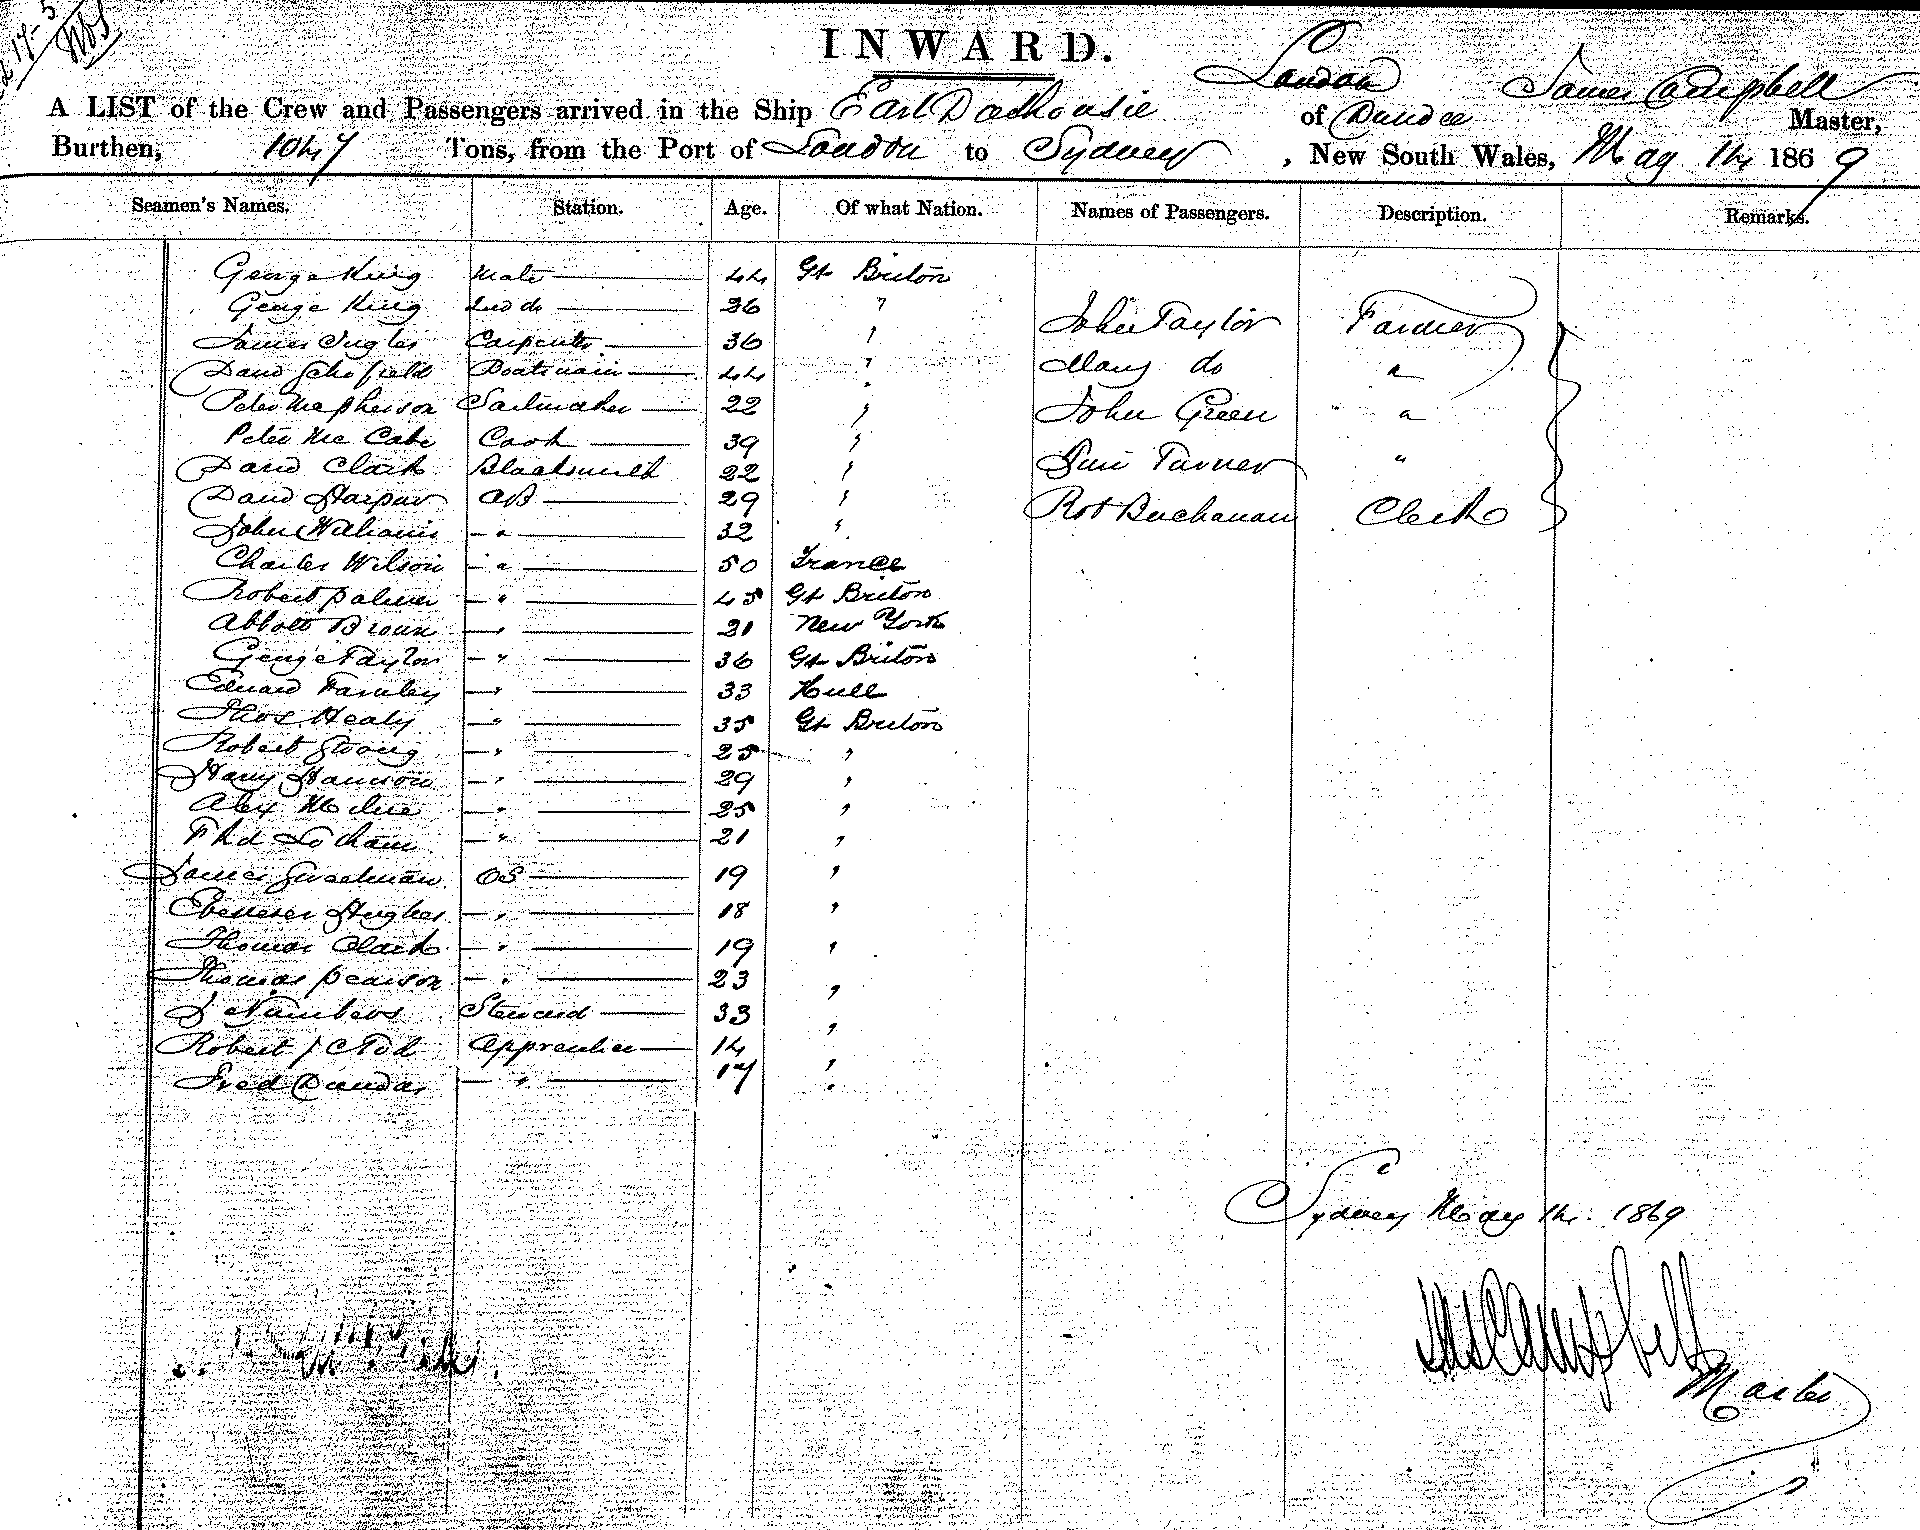 INWARD.
London
A LIST of the Crew and Passengers arrived in the Ship Earl Dalhousie of Dundee James Campbell Master,
Burthen, 1047 Tons, from the Port of London to Sydney, New South Wales, May 14 1869
Seamen's Names. Station. Age. Of what Nation. Names of Passengers. Description. Remarks.
George King Mate 44 Gt Briton
George King 2nd do 26 "
James Ingles Carpenter 36 " John Taylor Farmer
David Schofield Boatswain 44 " Mary do "
Peter McPherson Sailmaker 22 " John Green "
Peter McCabe Cook 39 "
David Clark Blacksmith 22 " Turner "
David Harper AB 29 " Rot Buchanan Clerk
John Williams " 32 "
Charles Wilson " 50 France
Robert Palmer " 45 Gt Briton
Abbott Brown " 21 New York
George Taylor " 36 Gt Briton
Edward Farnley " 33 Hull
Thos Healy " 35 Gt Briton
Robert Strong " 25 "
Harry Harrison " 29 "
Alex Milne " 25 "
" 21 "
James OS 19 "
Ebenezer Hughes " 18 "
Thomas Clark " 19 "
Thomas Pearson " 23 "
Steward 33 "
Robert Apprentice 14 "
Fred Dundas " 17 "
Sydney May 14. 1869
Jas Campbell
Master